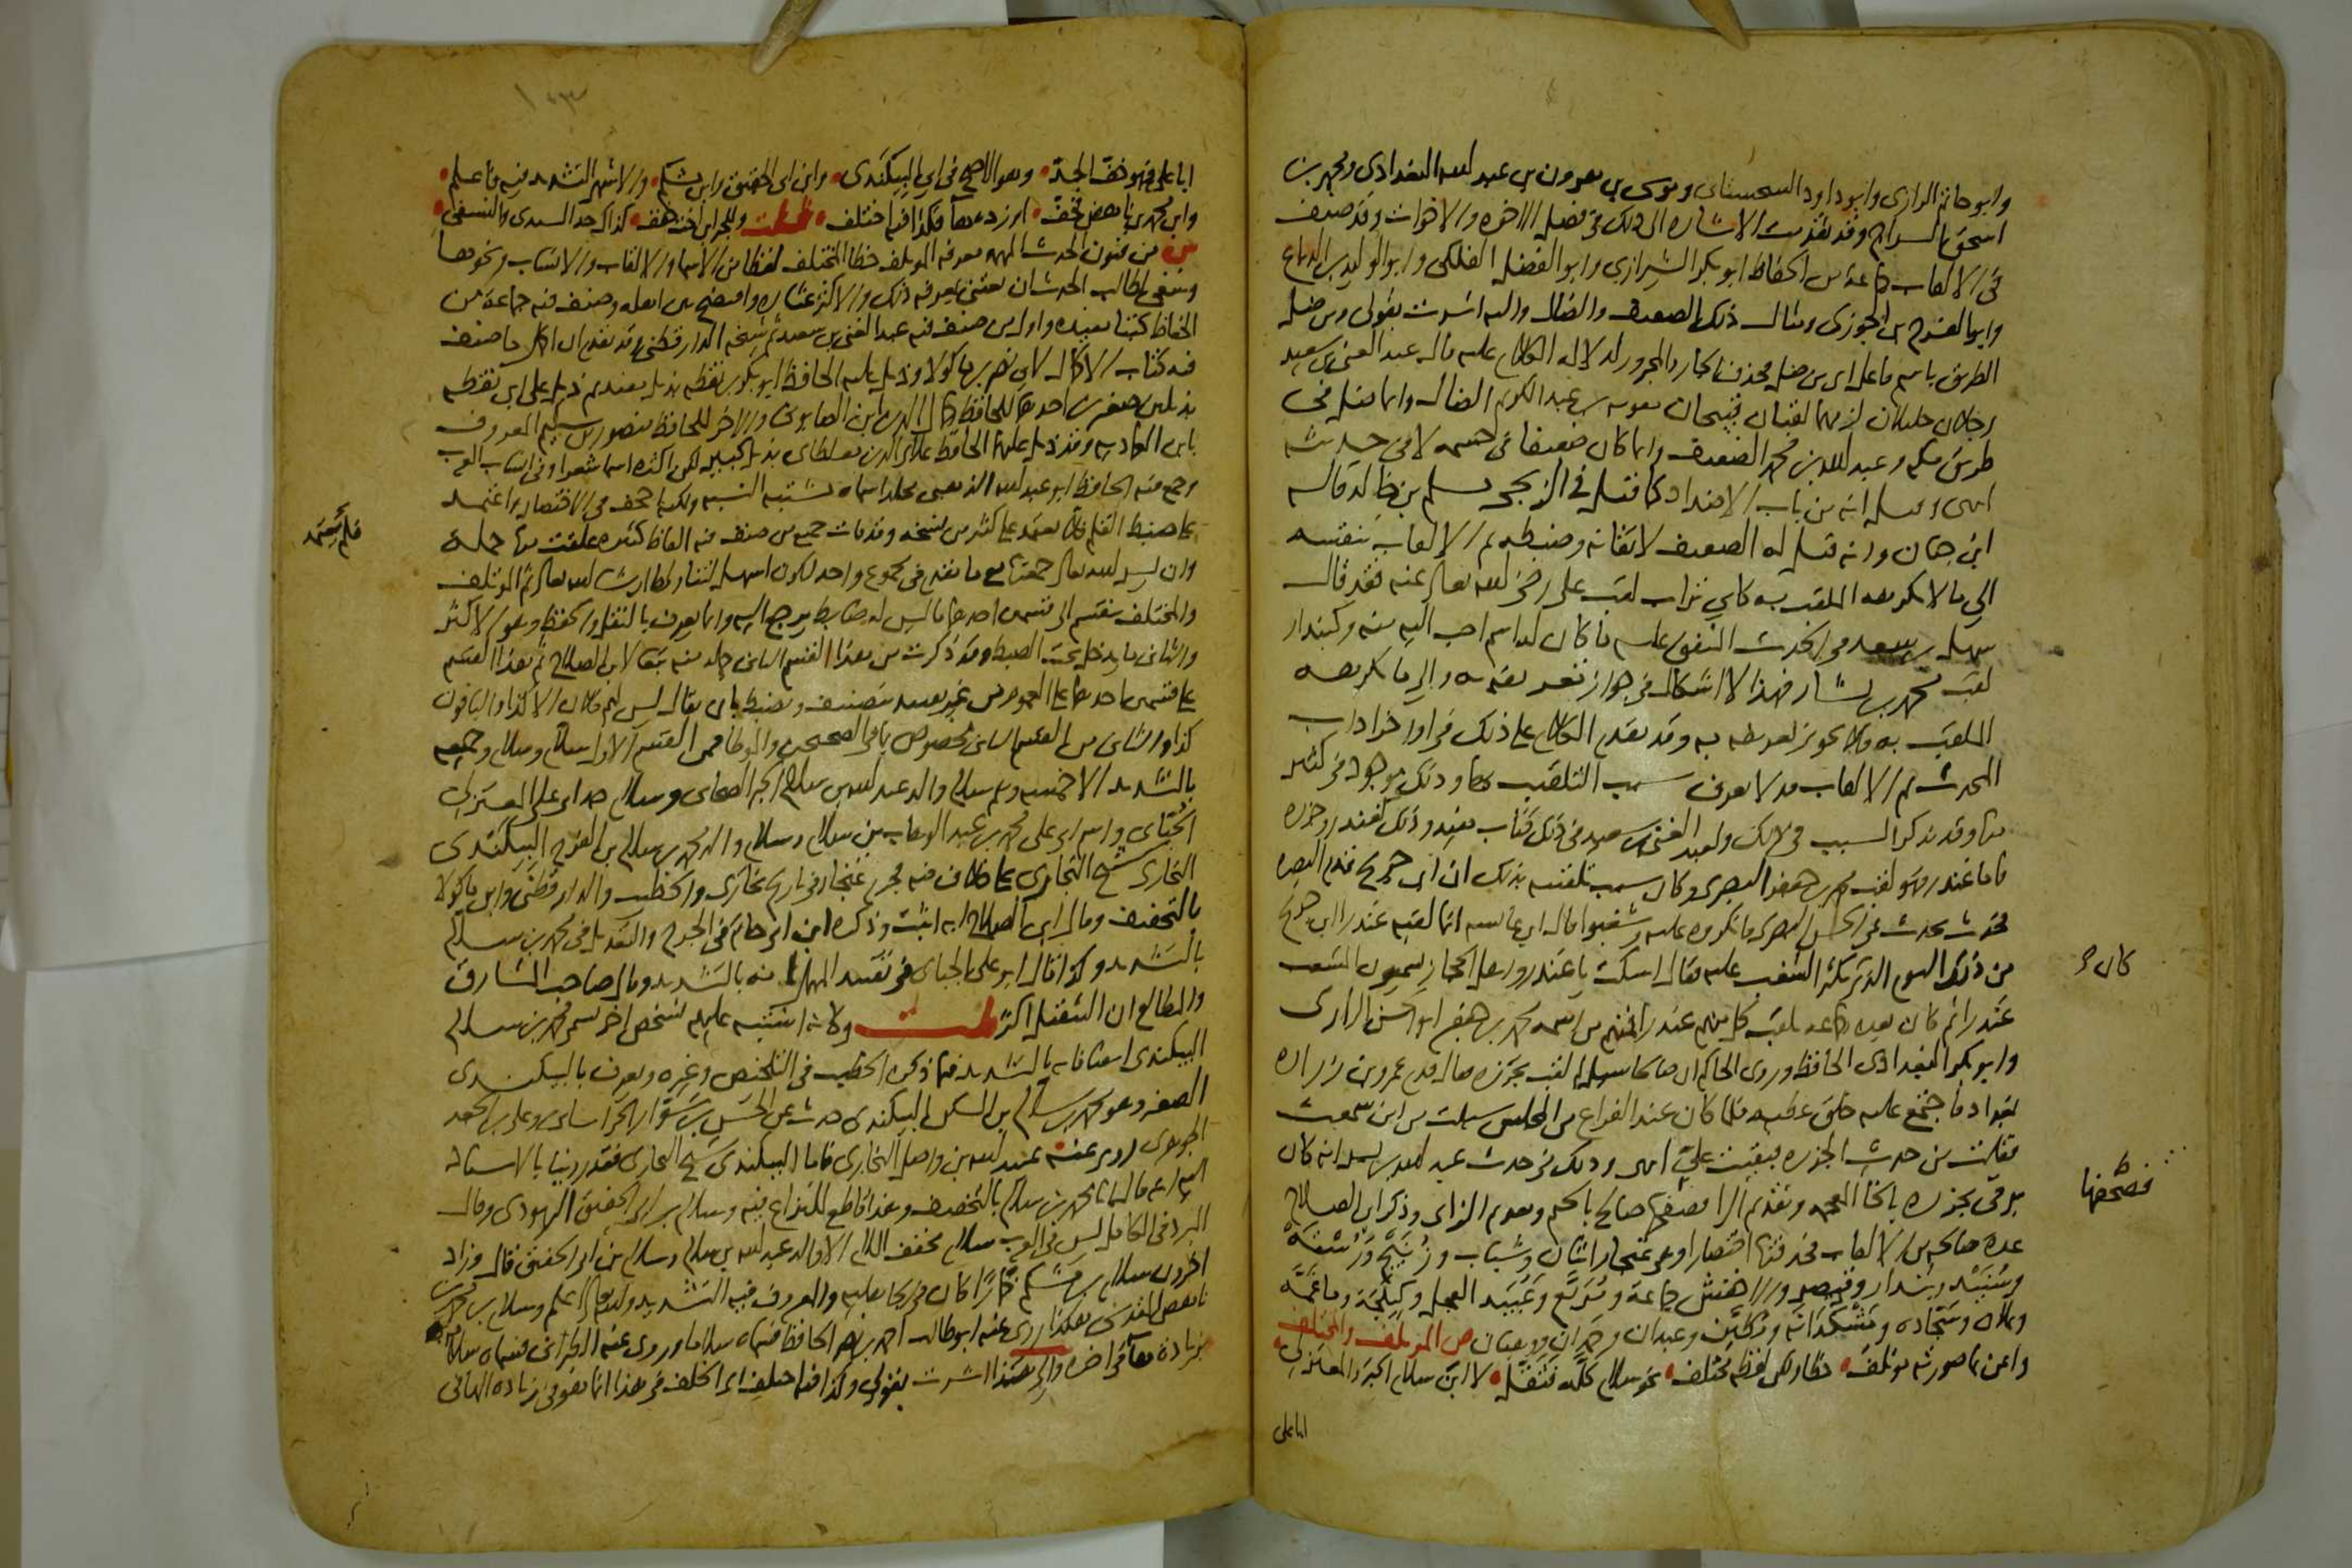 وابو حاتم الرازي وابو داود السجستاني وموسى بن هرون بن عبد الله البغدادى ومحمد بن
اسحق السراج وقد تقدمت الاشارة الى ذلك في فصل الاخوة والاخوات وقد صنف
في الالقاب جماعة من الحفاظ ابو بكر الشيرازي وابو الفضل الفلكي وابو الوليد بن الدباغ
وابو الفرج بن الجوزى ومثال ذلك الضعيف والضال واليه اشرت بقولى ومن ضل
الطريق باسم فاعل اى من ضل فحذف الجار والمجرور لدلالة الكلام عليه قال عبد الغني بن سعيد
رجلان جليلان لزمهما لقبان قبيحان معوية بن عبد الكريم الضال وانما ضل في
طريق مكة وعبد الله بن محمد الضعيف وانما كان ضعيفا في جسمه لا في حديثه
انتهى وقيل انه من باب الاضداد كما قيل في الزنجى مسلم بن خالد قاله
ابن حبان وانه قيل له الضعيف لاتقانه وضبطه ثم الالقاب تنقسم
الى ما لا يكرهه الملقب به كابي تراب لقب على رضى الله تعالى عنه فقد قال
سهل بن سعد في الحديث المتفق عليه ما كان له اسم احب اليه منه وكبندار
لقب محمد بن بشار فهذا لا اشكال في جواز تعريفه به والى ما يكرهه
الملقب به فلا يجوز تعريفه به وقد تقدم الكلام على ذلك في اواخر اداب
المحدث ثم الالقاب قد لا يعرف سبب التلقيب بها وذلك موجود في كثير
منها وقد يذكر السبب في ذلك ولعبد الغني بن سعيد في ذلك كتاب مفيد وذلك كغندر وجزرة
فاما غندر فهو لقب محمد بن جعفر البصرى وكان سبب تلقيبه بذلك ان ابن جريج قدم البصرة
فحدث بحديث عن الحسن البصرى فانكروه عليه وشغبوا قال ابن عائشة انما لقبه غندرا ابن جريج
من ذلك اليوم الذى يكثر الشغب عليه فقال اسكت يا غندر واهل الحجاز يسمون المشغب
كان
غندرا ثم كان بعده جماعة يلقب كل منهم غندرا فمنهم من اسمه محمد بن جعفر ابو الحسن الرازى
وابو بكر البغدادى الحافظ وروى الحاكم ان صالحا سئل لم لقب بجزرة فقال قدم عمرو بن زرارة
بغداد فاجتمع عليه خلق عظيم فلما كان عند الفراغ من المجلس سئلت من اين سمعت
فقلت من حديث الجزرة فبقيت على انتهى وذلك في حديث عبد الله بن بسر انه كان
يرقى بخرزة بالخا المعجمة وتقديم الرا فصحفها صالح بالجيم وتقديم الزاى وذكر ابن الصلاح
فصحفها
عدة صالحة من الالقاب فحذفتها اختصارا وهى غنجار اثنان وشباب وزنيج ورسته
وسنيد وبندار وقيصر والاخفش جماعة ومربع وعبيد العجل وكيلجة وماغمه
وعلان وسجادة ومشكدانة ومطين وعبدان وحمدان ووهبان ص المؤتلف والمختلف
واعن بما صورته مؤتلف خطا ولكن لفظه مختلف نحو سلام كله فثقل لا ابن سلام الحبر والمعتزلى
ابا على
ابا على فهو خف الجد وهو الاصح في ابى البيكندى وابن ابى الحقيق وابن مشكم والاشهر التشديد فيه فاعلم
وابن محمد بن ناهض فخف او زده هاء فكذا فيه اختلف قلت وللحبر ابن اخت خفف كذاك جد السيدى والنسفى
ش من فنون الحديث المهمة معرفة المؤتلف خطا المختلف لفظا من الاسما والالقاب والانساب ونحوها
وينبغى لطالب الحديث ان يعتنى بمعرفة ذلك والا كثر عثاره وافتضح بين اهله وصنف فيه جماعة من
الحفاظ كتبا مفيدة واول من صنف فيه عبد الغنى بن سعيد ثم شيخه الدارقطنى وقد تقدم ان اكمل ما صنف
فيه كتاب الاكمال لابى نصر بن ماكولا وذيل عليه الحافظ ابو بكر بن نقطة بذيل مفيد ثم ذيل على ابن نقطة
بذيلين صغيرين احدهما للحافظ جمال الدين ابن الصابونى والاخر للحافظ منصور بن سليم المعروف
بابن العمادية وقد ذيل عليهما الحافظ علا الدين مغلطاى بذيل كبير لكن اكثره اسما شعرا وفي انساب العرب
وجمع فيه الحافظ ابو عبد الله الذهبى مجلدا سماه مشتبه النسبة ولكنه اجحف في الاختصار واعتمد
على ضبط القلم فلا يعتمد على كثير من نسخه وقد فات جميع من صنف فيه الفاظ كثيرة علقت منها جملة
فلم يعتمد
وان يسر الله تعالى جمعتها مع ما تقدم في مجموع واحد ليكون اسهل لتناولها ان شا الله تعالى ثم المؤتلف
والمختلف ينقسم الى قسمين احدهما ما ليس له ضابط يرجع اليه وانما يعرف بالنقل والحفظ وهو الاكثر
والثانى ما يدخل تحت الضبط وقد ذكرت من هذا القسم الثانى جملة منه تبعا لابن الصلاح ثم هذا القسم
على قسمين احدهما على العموم من غير تقييد بتصنيف ويضبط بان يقال ليس لهم فلان الا كذا والباقون
كذا والثانى من القسم الثانى مخصوص بما في الصحيحين والموطا فمن القسم الاول سلام وسلام وجميعه
بالتشديد الا خمسة وهم سلام والد عبد الله بن سلام الحبر الصحابى وسلام جد ابى على المعتزلى
الجبائى واسم ابى على محمد بن عبد الوهاب بن سلام وسلام والد محمد بن سلام بن الفرج البيكندى
البخارى شيخ البخارى على خلاف فيه فجزم غنجار في تاريخ بخارى والخطيب والدارقطنى وابن ماكولا
بالتخفيف وقال ابن الصلاح انه اثبت وذكره ابن ابى حاتم في الجرح والتعديل في محمد بن سلام
بالتشديد وكذا قال ابو على الجيانى في تقييد المهمل انه بالتشديد وقال صاحب المشارق
والمطالع ان التثقيل اكثر قلت وكانه اشتبه عليهم بشخص اخر يسمى محمد بن سلام
البيكندى ايضا فانه بالتشديد فيما ذكره الخطيب في التلخيص وغيره ويعرف بالبيكندى
الصغير وهو محمد بن سلام بن السكن البيكندى حدث عن الحسن بن سوار الخراسانى وعلى بن الجعد
الجوهرى روى عنه عبيد الله بن واصل البخارى فاما البيكندى شيخ البخارى فقد روينا بالاسناد
اليه انه قال انا محمد بن سلام بالتخفيف وهذا قاطع للنزاع فيه وسلام بن ابى الحقيق اليهودى وقال
المبرد في الكامل ليس في العرب سلام مخفف اللام الا والد عبد الله بن سلام وسلام بن ابى الحقيق قال وزاد
اخرون سلام بن مشكم خمارا كان في الجاهلية والمعروف فيه التشديد والله تعالى اعلم وسلام بن محمد بن
ناهض المقدسى هكذا روى عنه ابو طالب احمد بن نصر الحافظ فسماه سلاما وروى عنه الطبرانى فسماه سلامة
بزيادة هاء في اخره والى هذا اشرت بقولى وكذا فيه اختلف اى الخلف في هذا انما هو في زيادة الهاء في